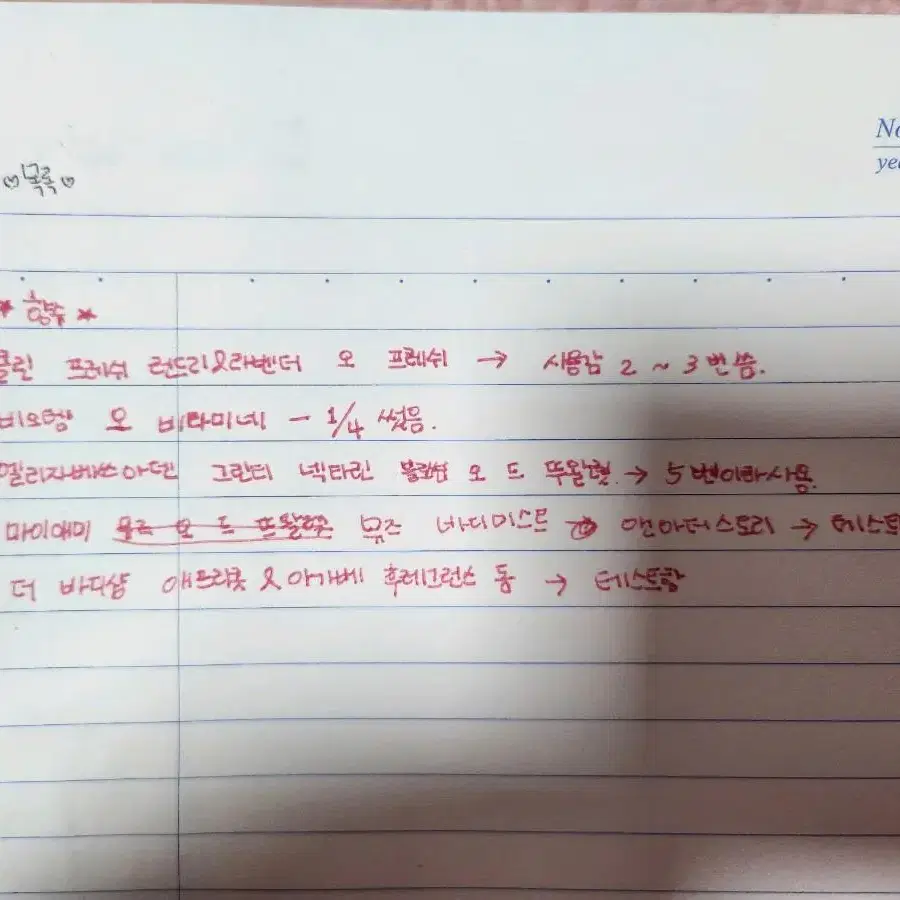 No
yea
♡목록♡
* 향수 *
클린 프레쉬 런드리&라벤더 오 프레쉬 → 사용감 2 ~ 3번 씀.
비오템 오 비타미네 - 1/4 썼음.
엘리자베스아덴 그린티 넥타린 블라썸 오 드 뚜왈렛 → 5번이하사용.
마이애미 뮤즈 바디미스트 앤아더스토리 → 테스트
더 바디샵 애프리콧 & 아가베 후레그런스 등 → 테스트함